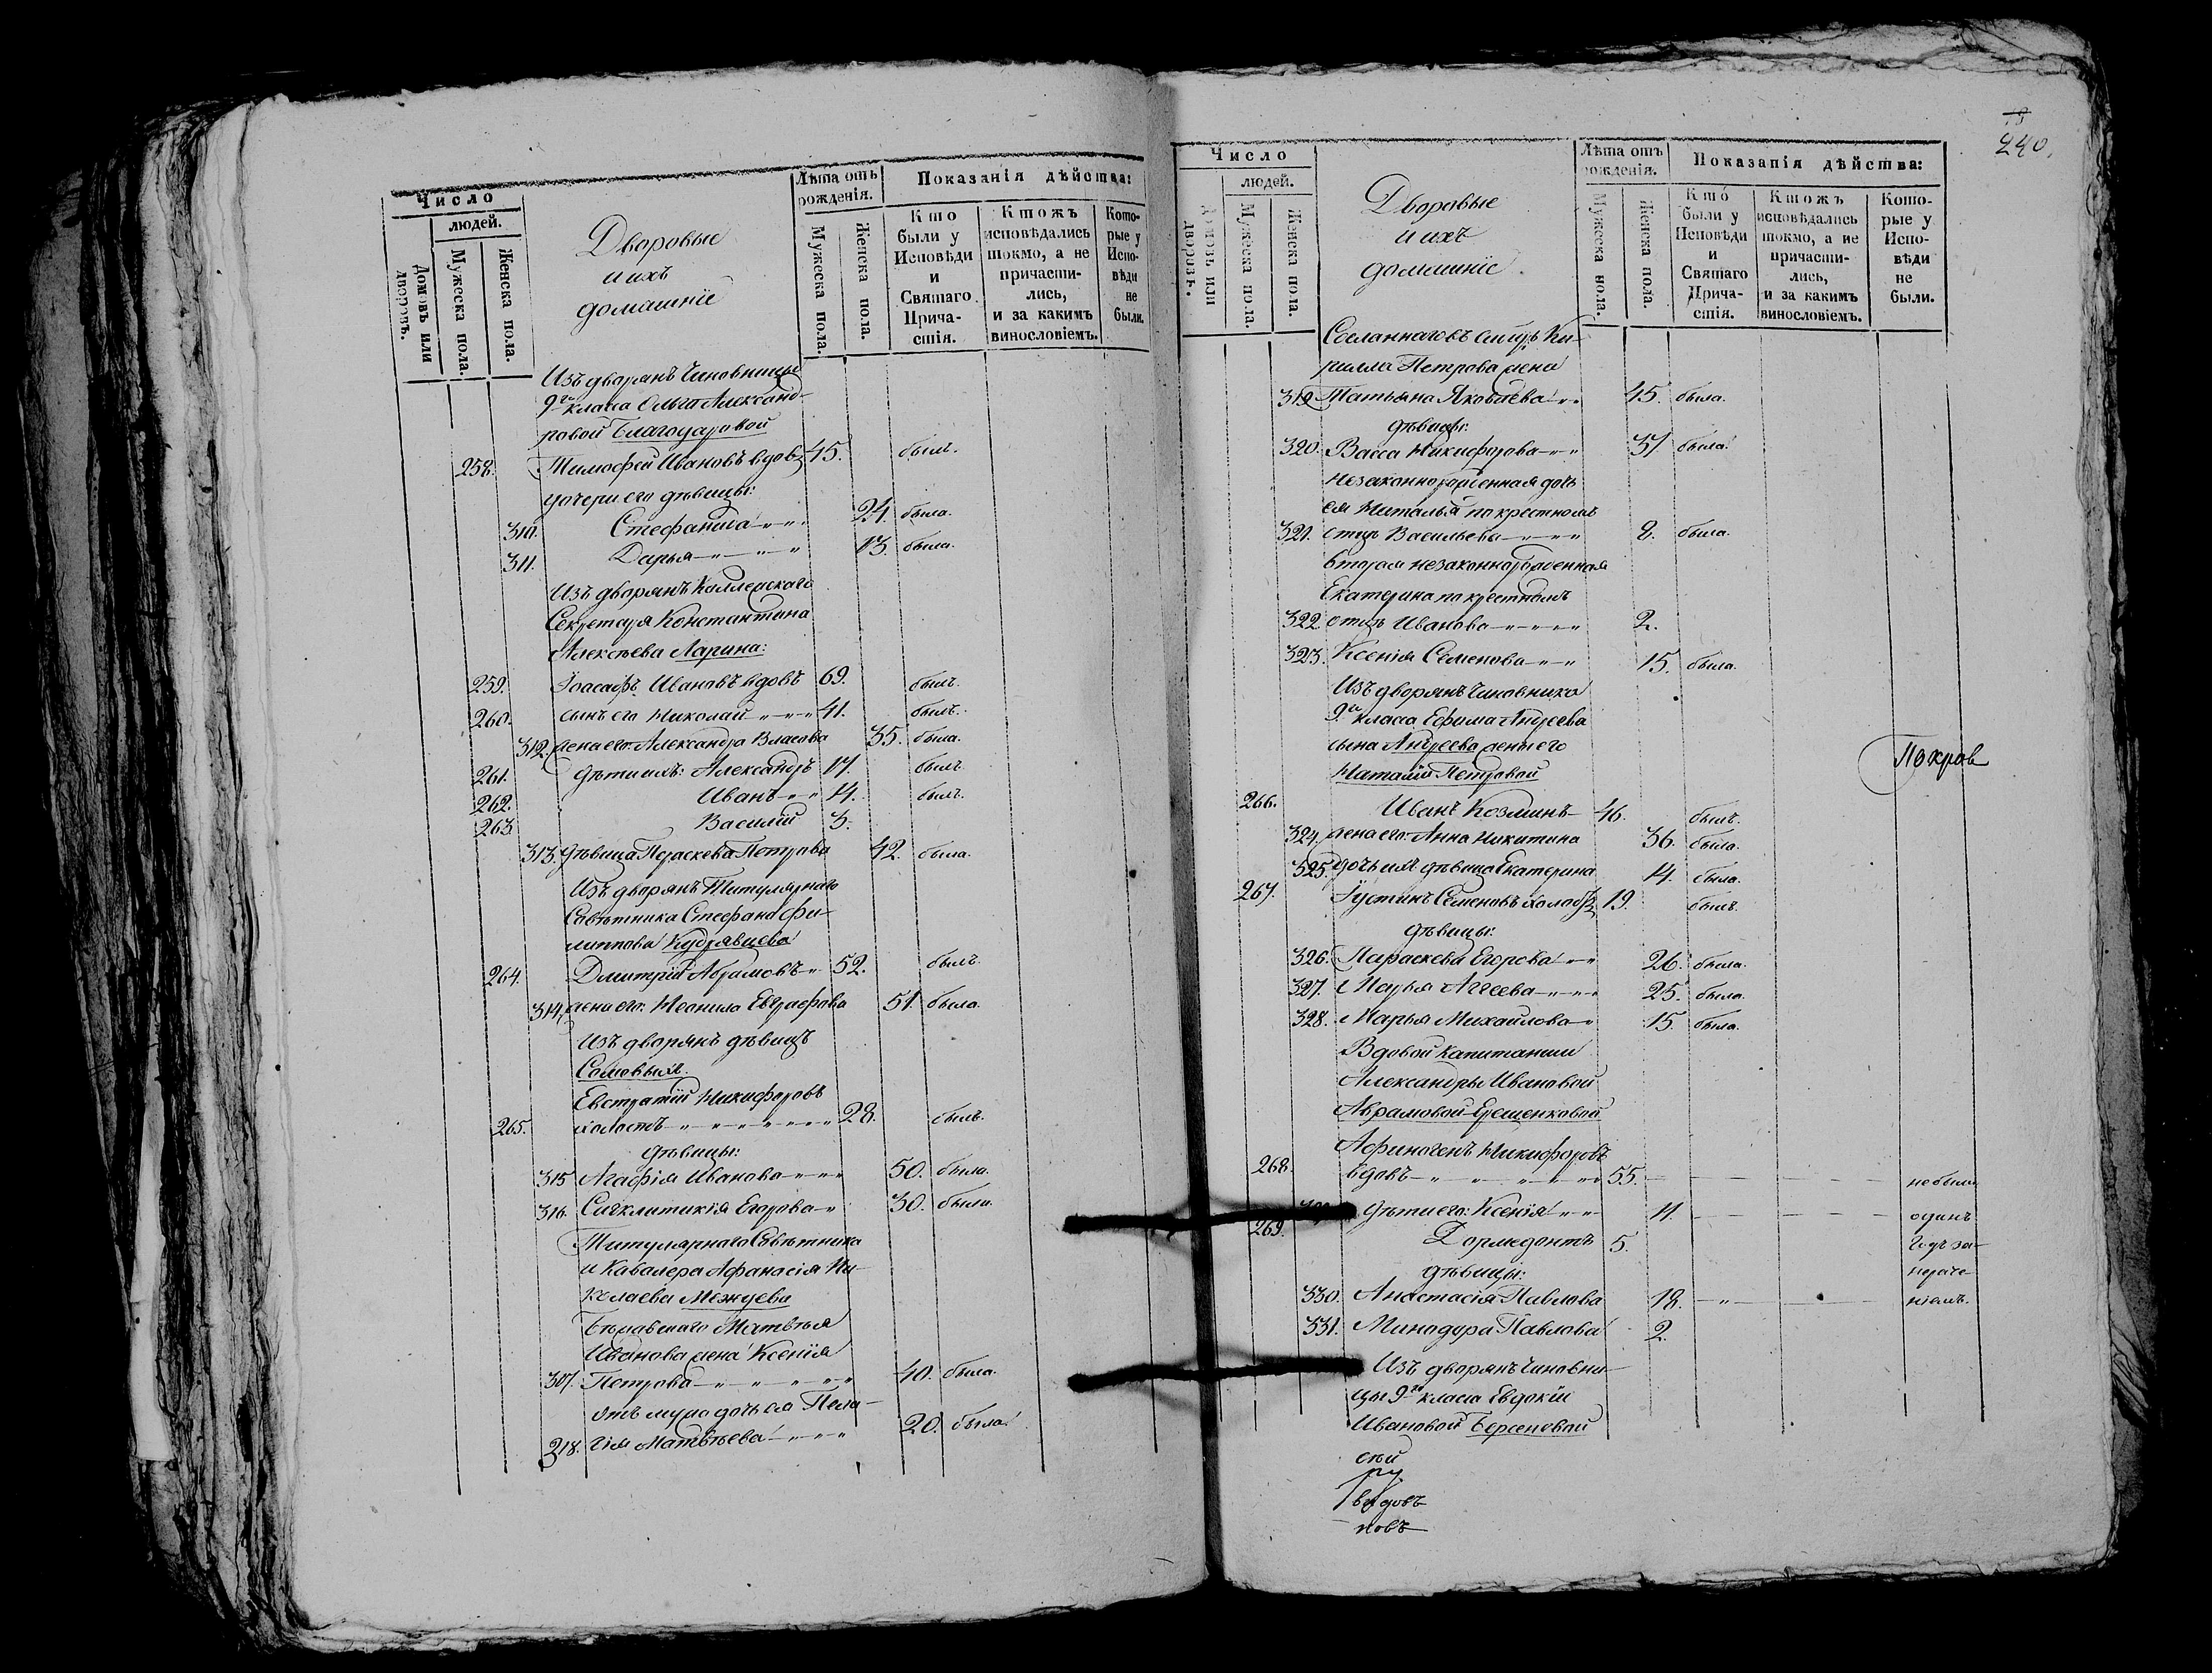 Число
людей.
Домовъ или дворовъ.
Мужеска пола.
Женска пола.
Дворовые
и ихъ
домашніе
Лѣта отъ рожденія.
Мужеска пола.
Женска пола.
Показанія дѣйства:
Кто были у Исповѣди и Святаго Прича-стія.
Ктожъ исповѣдались токмо, а не причасти-лись, и за какимъ винословіемъ.
Кото-рые у Испо-вѣди не были.
Изъ дворянъ Чиновницы
9го класса Ольги Александ-
ровой Благоуаровой
258. Тимофей Ивановъ вдовъ 45. былъ.
дочери его дѣвицы:
310. Стефанида 24. была.
311. Дарья 13. была.
Изъ дворянъ Коллежскаго
Секретаря Константина
Алексѣева Ларина:
259. Іоасафъ Ивановъ вдовъ 69. былъ.
260. сынъ его Николай 41. былъ.
312. жена его Александра Власова 35. была.
261. дѣти ихъ: Александръ 17. былъ
262. Иванъ 14. былъ.
263. Василій 3.
313. дѣвица Параскева Петрова 42. была.
Изъ дворянъ Титулярнаго
Совѣтника Стефана Фи-
липпова Кудрявцева
264. Дмитрій Абрамовъ 52. былъ.
314. жена его Неонила Евграфова 51. была.
Изъ дворянъ дѣвицъ
Сомовыхъ.
Евстратій Никифоровъ
265. холостъ 28. былъ.
дѣвицы:
315 Агафія Иванова 50. была.
316. Сигклитикія Егорова 30. была.
Титулярнаго Совѣтника
и Кавалера Афанасія Ни-
колаева Межуева
Бѣжавшаго Матвѣя
Иванова жена Ксенія
307. Петрова 40. была.
дочь ея Пела-
218. гія Матвѣева 20. была
18
240.
Число
людей.
Домовъ или дворовъ.
Мужеска пола.
Женска пола.
Дворовые
и ихъ
домашніе.
Лѣта отъ рожденія.
Мужеска пола.
Женска пола.
Показанія дѣйства:
Кто были у Исповѣди и Святаго Прича-стія.
Ктожъ исповѣдались токмо, а не причасти-лись, и за какимъ винословіемъ.
Кото-рые у Испо-вѣди не были.
Сосланнаго въ Сибирь Ки-
рилла Петрова жена
319. Татьяна Яковлева 45. была.
дѣвицы:
320. Васса Никифорова 37 была.
Незаконнорожденная дочь
ея Наталья по крестномъ
321. отцѣ Васильева 8. была.
вторая незаконнорожденная
Екатерина по крестномъ
322. отцѣ Иванова 2.
323. Ксенія Семенова 15. была.
Изъ дворянъ Чиновника
9го класса Ефима Андреева
сына Андреева жены его
Наталіи Петровой
Покров
266. Иванъ Козминъ 46. былъ.
324. жена его Анна Никитина 36. была.
325. дочь ихъ дѣвица Екатерина 14. была.
267. Іустинъ Семеновъ холостъ 19. былъ.
дѣвицы:
326. Параскева Егорова 26. была.
327. Марья Аггеева 25. была.
328. Марья Михайлова 15. была.
Вдовой Капитанши
Александры Ивановой
Аврамовой-Ерещенковой
Афиногенъ Никифоровъ
268. вдовъ 55. не были
дѣти его: Ксенія 11. одинъ
269. Дормедонтъ 5. годъ за-
дѣвицы: нераче-
330. Анастасія Павлова 18. ніемъ.
331. Минодора Павлова 2.
Изъ дворянъ Чиновни-
цы 9го класса Евдокіи
Ивановой Берсеневой